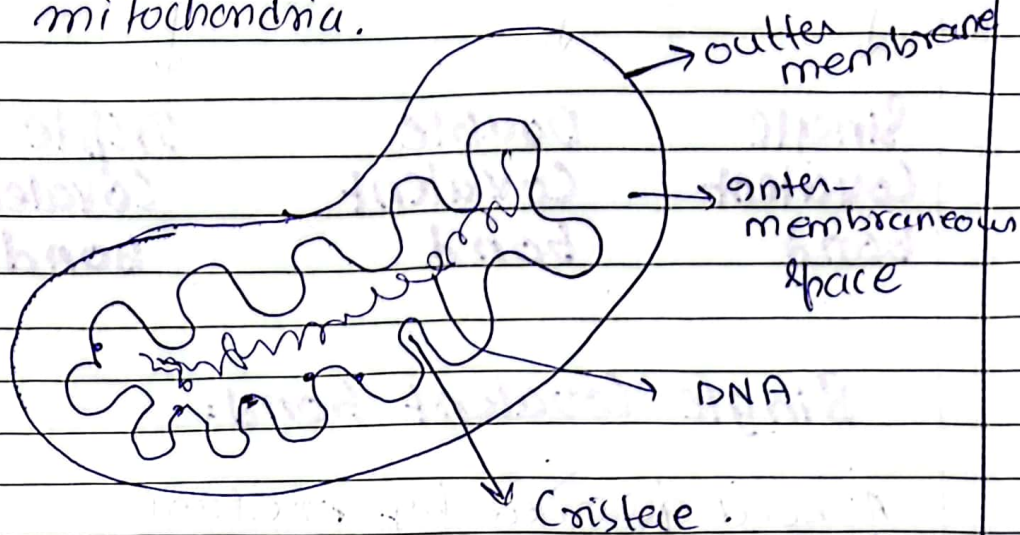 mitochondria.
outter
membrane
Inter-
membraneous
space
DNA
Cristae.